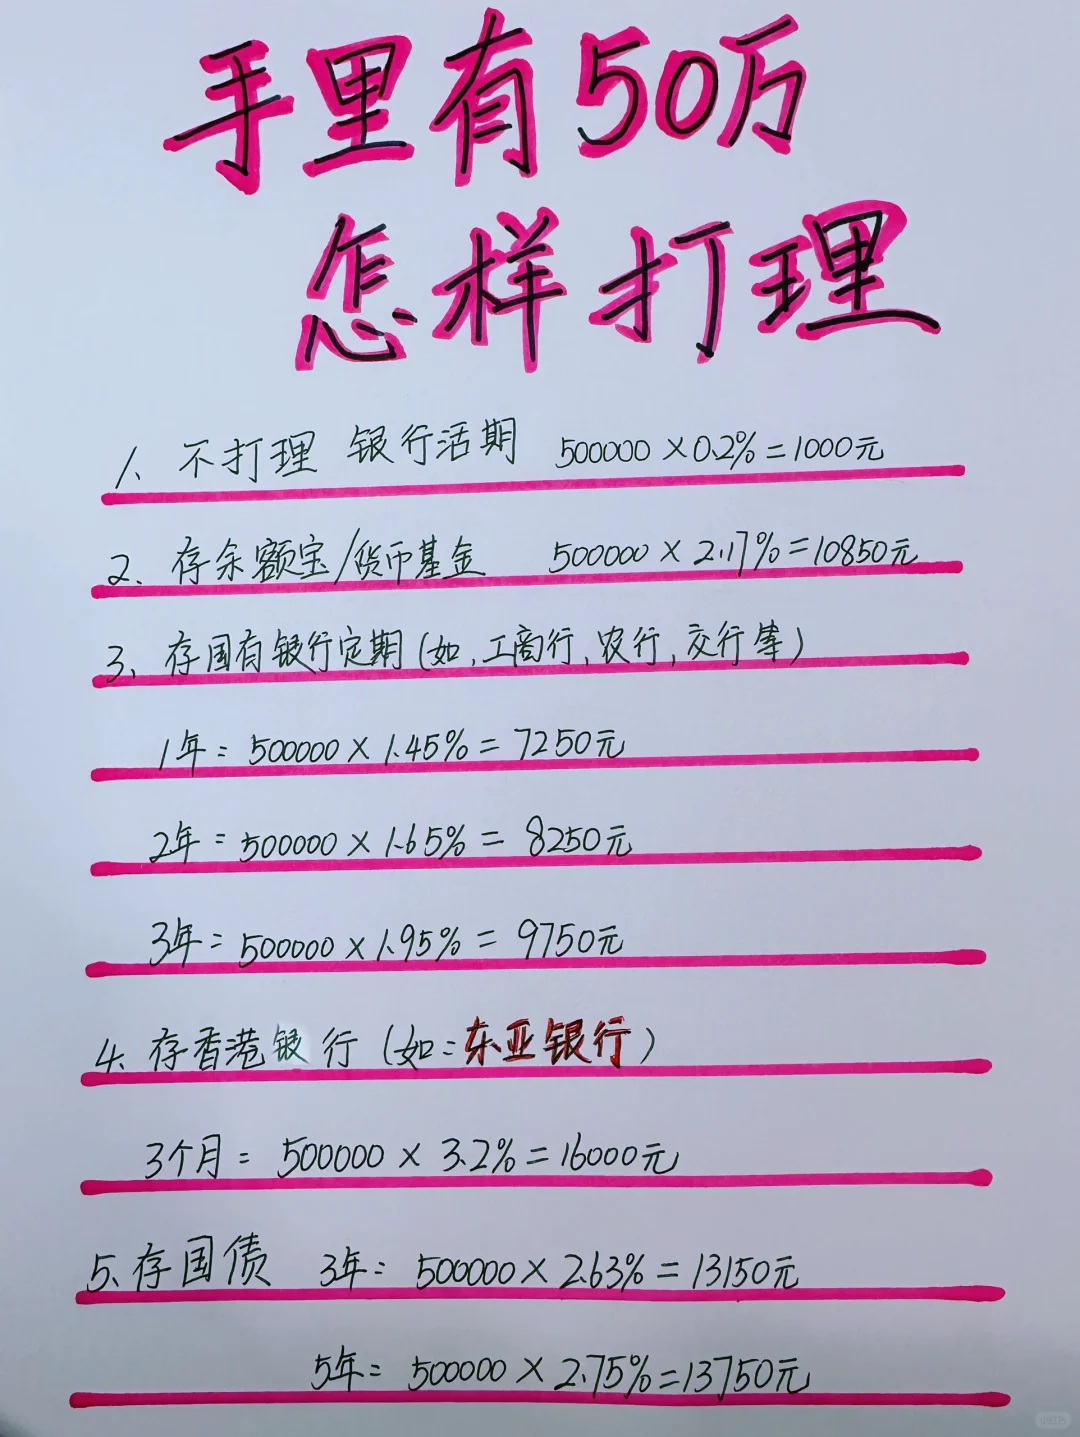 手里有50万
怎样打理
1、不打理 银行活期 500000×0.2%=1000元
2、存余额宝/货币基金 500000×2.17%=10850元
3、存国有银行定期(如,工商行,农行,交行等)
1年=500000×1.45%=7250元
2年=500000×1.65%=8250元
3年=500000×1.95%=9750元
4、存香港银行(如:东亚银行)
3个月=500000×3.2%=16000元
5、存国债 3年=500000×2.63%=13150元
5年=500000×2.75%=13750元